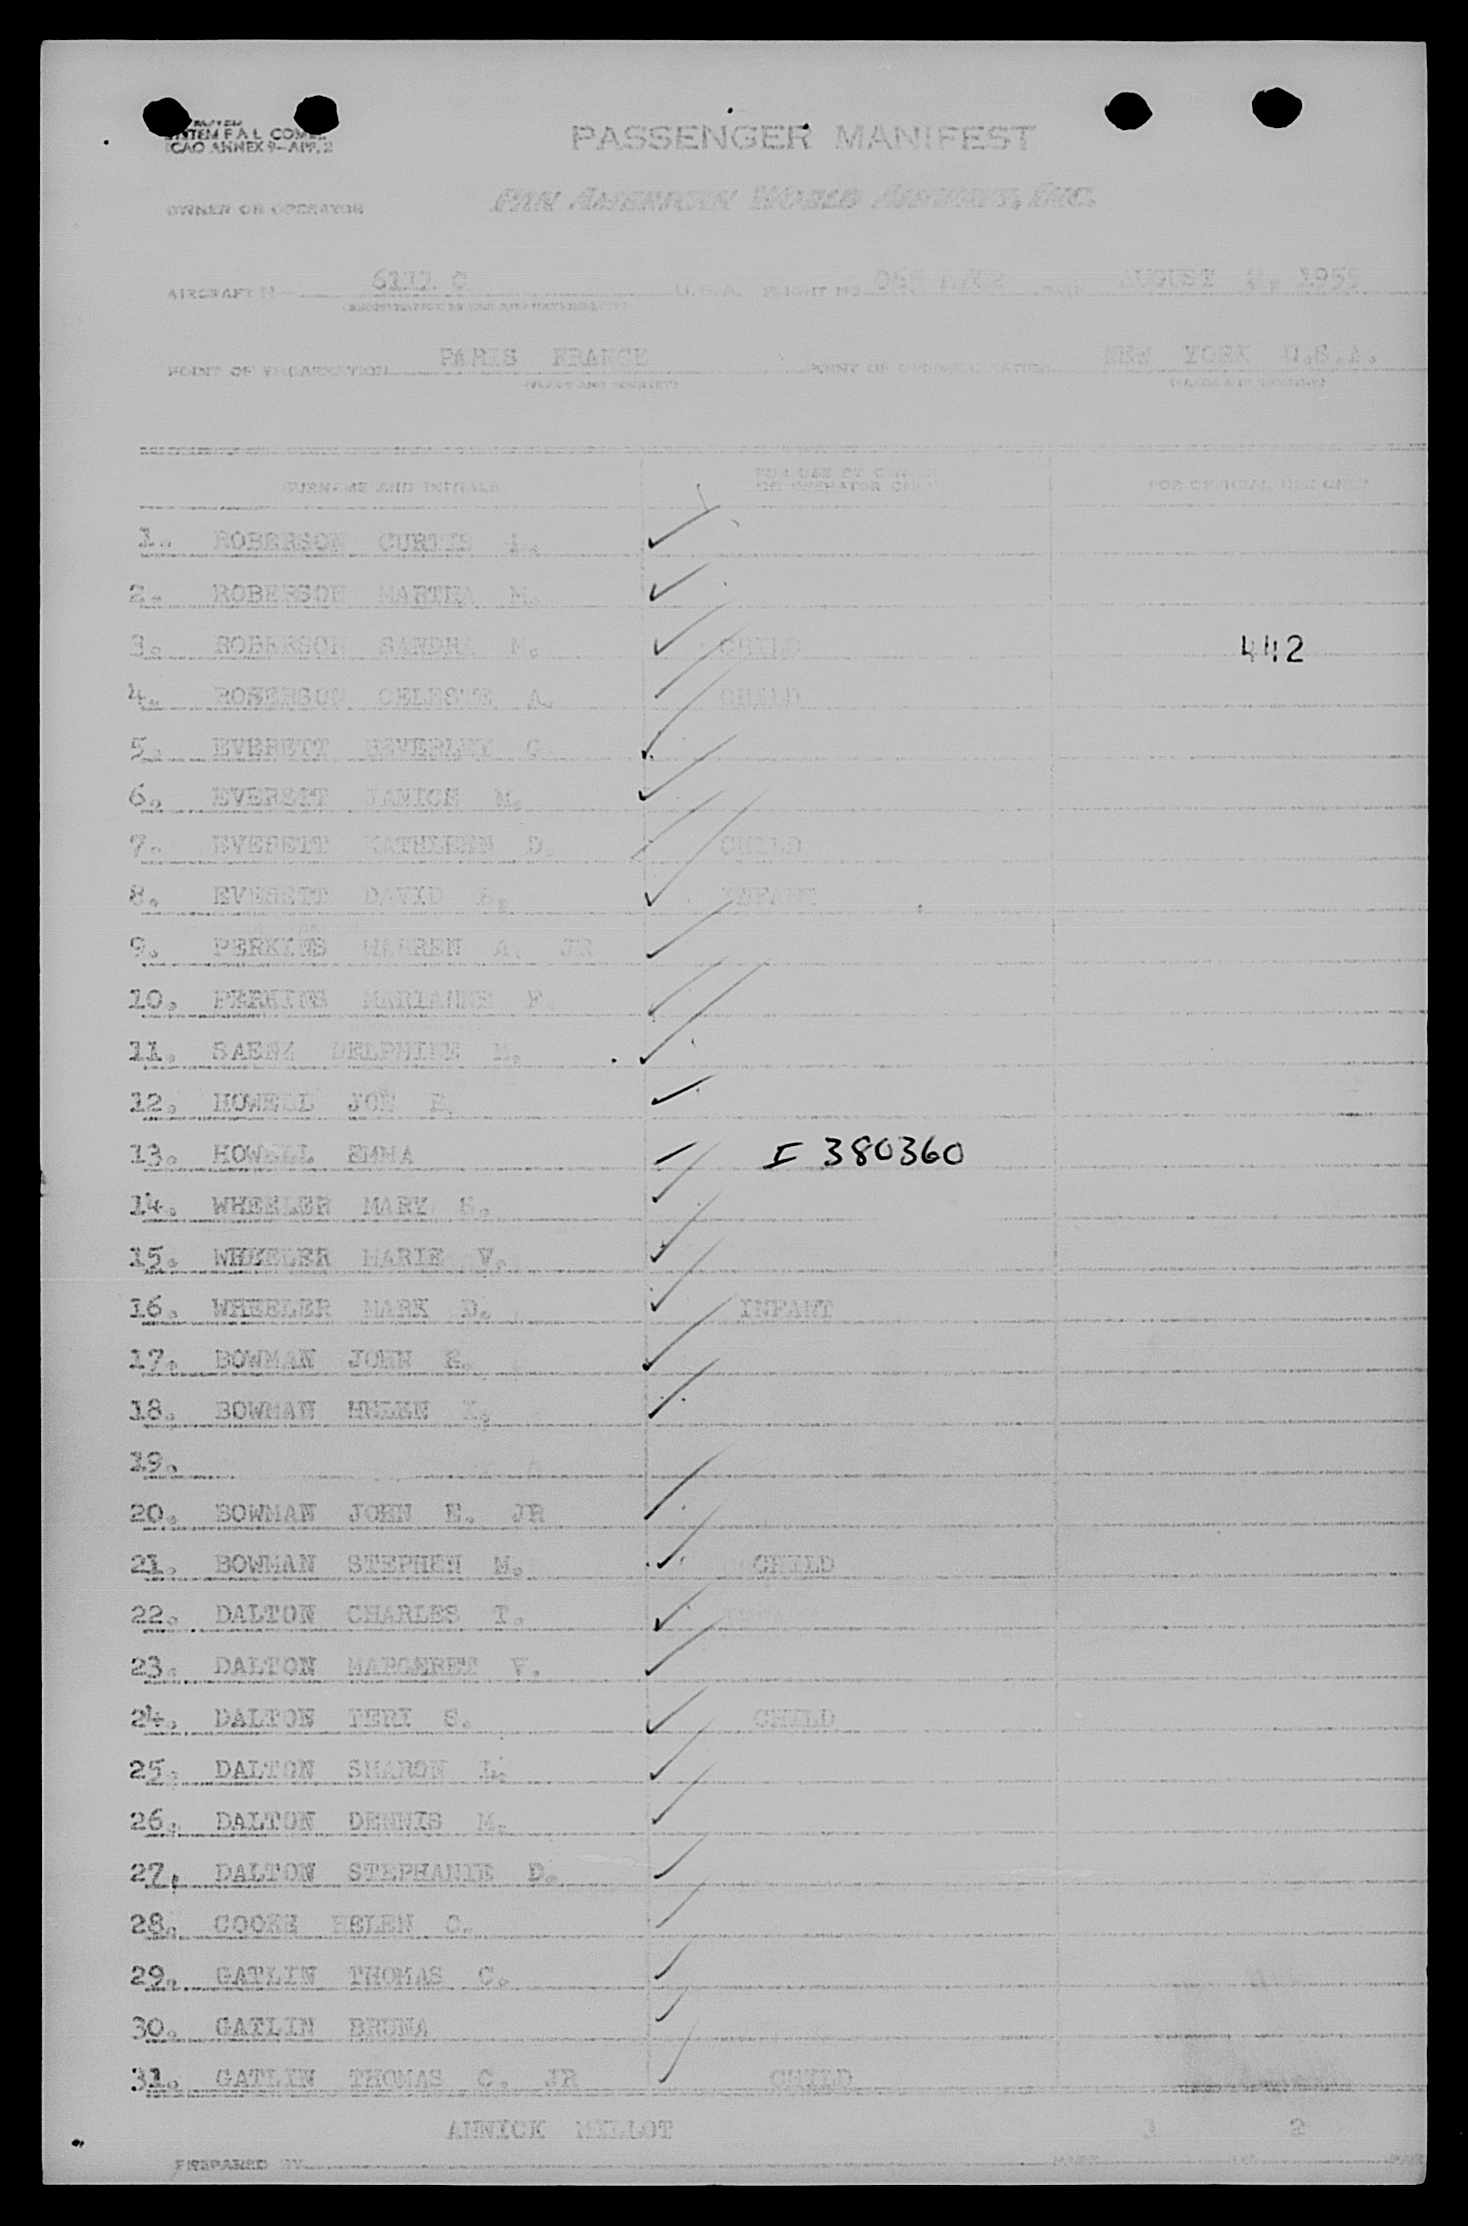 SYSTEM F.A.L. COM
ICAO ANNEX 9-APP. 2
PASSENGER MANIFEST
OWNER OR OPERATOR PAN AMERICAN WORLD AIRWAYS, INC.
AIRCRAFT N 6111 C U.S.A. FLIGHT NO. DATE AUGUST 1955
POINT OF EMBARKATION PARIS FRANCE POINT OF NEW YORK U.S.A.
(PLACE AND COUNTRY)
SURNAME AND INITIALS FOR USE BY OR OPERATOR ONLY FOR OFFICIAL USE ONLY
1. ROBERSON CURTIS
2. ROBERSON MARTHA M.
3. ROBERSON SANDRA M. CHILD 442
4. ROBERSON CELESTE A. CHILD
5. EVERETT BEVERLEY
6. EVERETT JANICE M.
7. EVERETT KATHLEEN D. CHILD
8. EVERETT DAVID INFANT
9. PERKINS WARREN A. JR
10. PERKINS MARIANNE F.
11. SAENZ DELPHINE M.
12. HOWELL JOE
13. HOWELL EMMA I 380360
14. WHEELER MARY
15. WHEELER MARIE V.
16. WHEELER MARK D. INFANT
17. BOWMAN JOHN E.
18. BOWMAN HELEN
19.
20. BOWMAN JOHN E. JR
21. BOWMAN STEPHEN M. CHILD
22. DALTON CHARLES T.
23. DALTON MARGARET V.
24. DALTON TERI S. CHILD
25. DALTON SHARON L.
26. DALTON DENNIS M.
27. DALTON STEPHANIE D.
28. COOKE HELEN C.
29. GATLIN THOMAS C.
30. GATLIN BRUNA
31. GATLIN THOMAS C. JR CHILD
ANNICK MILLOT 2
PREPARED BY